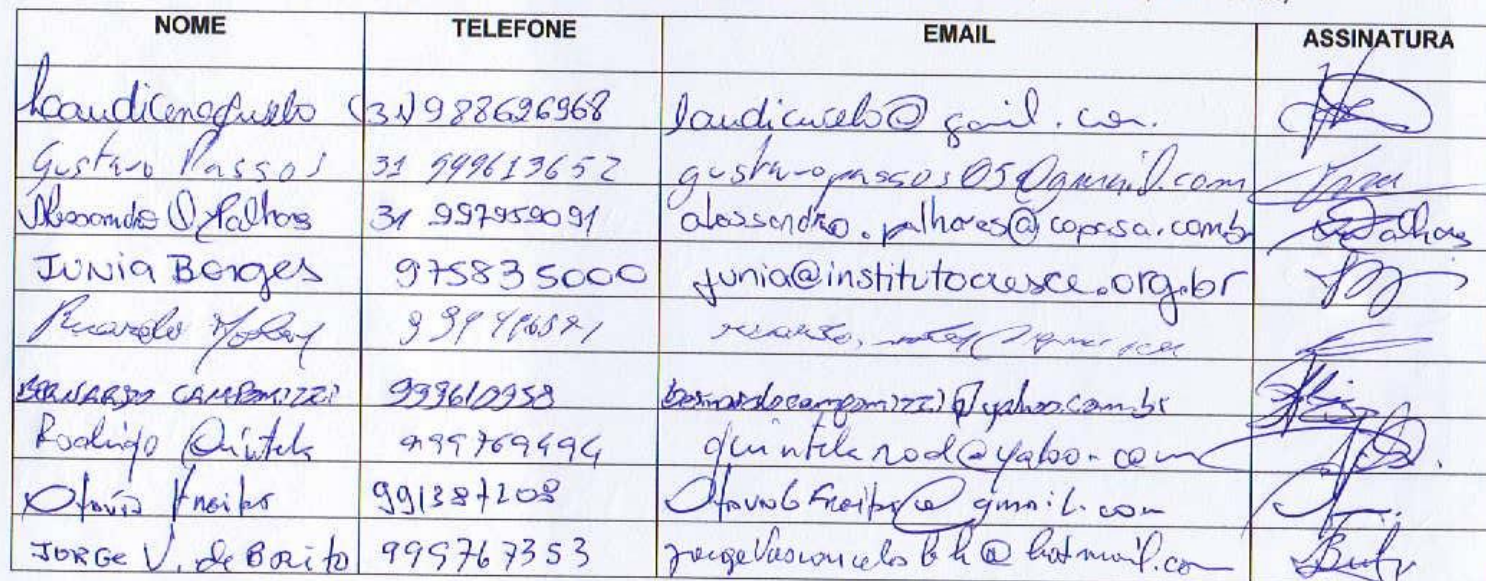 NOME TELEFONE EMAIL ASSINATURA
(31) 988626968
Gustavo Passos 31 999613652 gustavopassos05@gmail.com
Alessandro Palhares 31 997959091 alessandro.palhares@copasa.com.br Palhares
JUNIA Borges 975835000 junia@institutocresce.org.br
Ricardo
BERNARDO CAMPOMIZZI 999610958 bernardocampomizzi@yahoo.com.br
Rodrigo Quintela 999769494 quintelarod@yahoo.com
Otavio Freitas 991387208 @gmail.com
JORGE V. de Brito 999767353 jorgevasconcelosbh@hotmail.co Brito